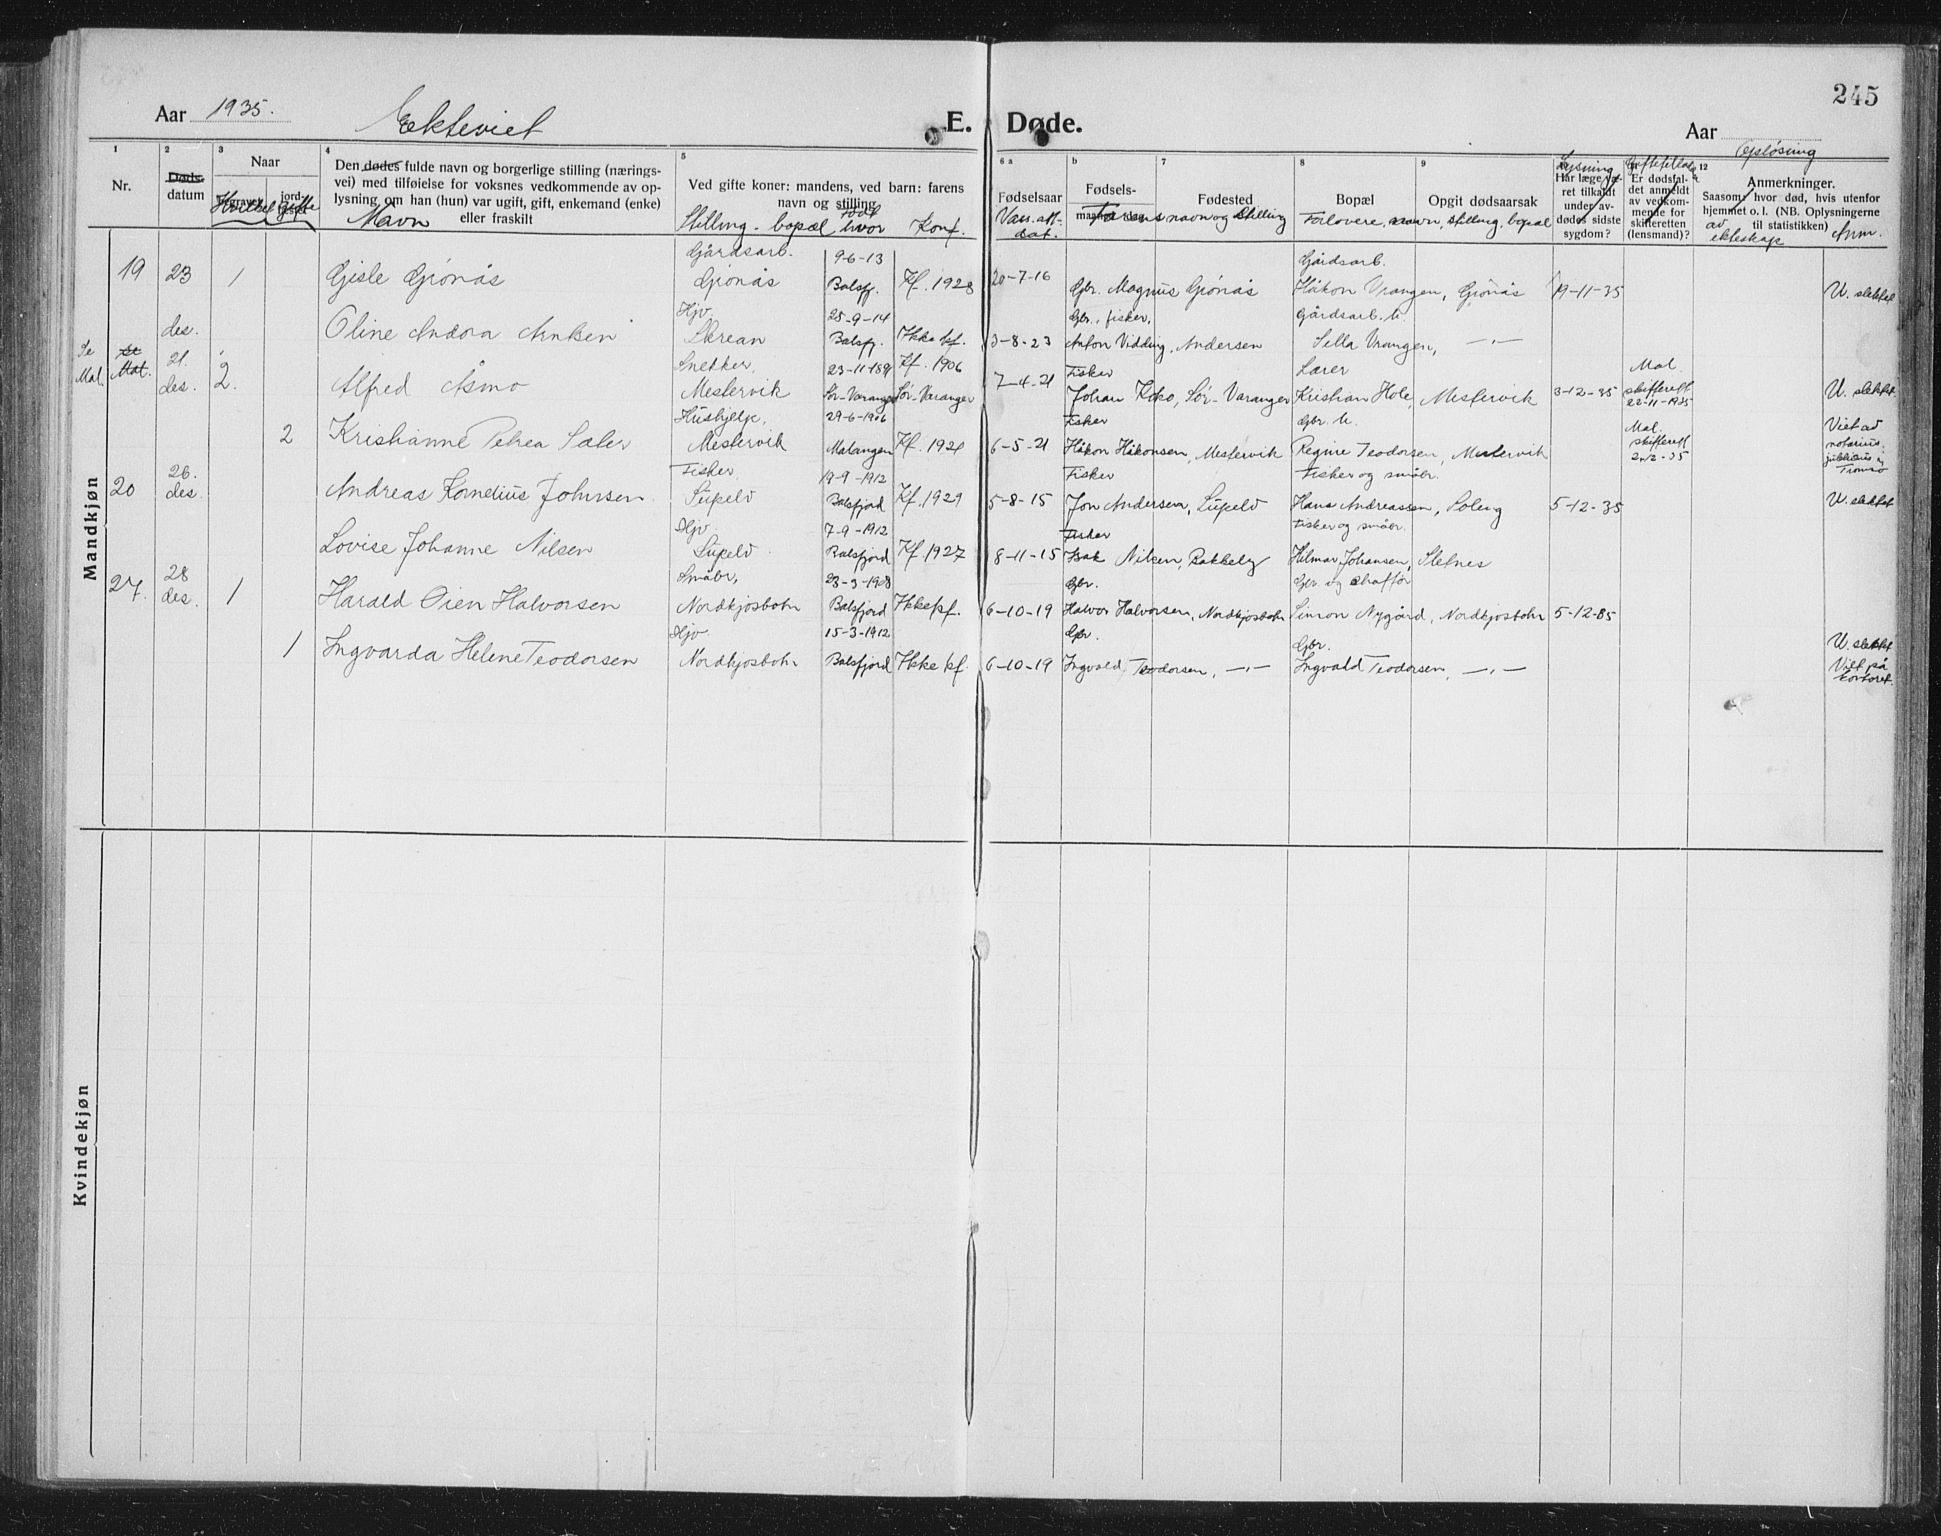 245
Aar 1935.
Ekteviet
E. Døde.
Aar
1 2 3 4 5 6 a b 7 8 9 12
Nr.
Døds-
datum
Naar
Den dødes fulde navn og borgerlige stilling (nærings-
vei) med tilføielse for voksnes vedkommende av op-
lysning om han (hun) var ugift, gift, enkemand (enke)
eller fraskilt
Navn
Ved gifte koner: mandens, ved barn: farens
navn og stilling
Stilling - bopæl født hvor Konf.
Fødselsaar
Vass. att.
dat.
Fødsels-
Fødested
Farens navn og stilling
Bopæl
Opgit dødsaarsak
Forlovere, navn, stilling, bopæl
Lysning
Har læge væ-
ret tilkaldt
under av-
dødes sidste
sygdom?
Er dødsfal-
det anmeldt
av vedkom-
mende for
skifteretten
(lensmand)?
Opløsning
Anmerkninger.
Saasom: hvor død, hvis utenfor
hjemmet o. l. (NB. Oplysningerne
til statistikken)
av
ekteskap
Anm.
Mandkjøn
Gårdsarb. 9-6-13 Gårdsarb.
19 23 1 Gisle Grønås Grønås Balsfj. Kf. 1928 20-7-16 Gbr. Magnus Grønås Håkon Vrangen, Grønås 19-11-35 U. slektet
Hjv. 25-9-14 Gbr., fisker, Gårdsarb. h.
des. Oline Andora Balsfj. Ikke kf. 3-8-23 Anton Vidding, Andersen Sella Vrangen, —"—
Se Mal. Mal. 21. Snekker, Kf. 1906 Fisker Lærer Mal.
des. 2. Alfred Åsmo Mestervik Sør-Varanger Sør-Varanger 7-4-21 Johan Koko, Sør-Varanger Kristian Hole, Mestervik 3-12-35 skifterett 22-11-1935 U. slektet
Hushjelp, 29-6-1906 Fisker Gbr. h. Mal.
2 Kristianne Petrea Sæter Mestervik Malangen Kf. 1921 6-5-21 Håkon Håkonsen, Mestervik Regine Teodorsen, Mestervik skifterett Viet av notarius publicus i Tromsø
26. Fisker 19-9-1912 Fisker Fisker og småbr.
20 des. Andreas Kornelius Johnsen Balsfjord Kf. 1929 5-8-15 Jon Andersen, Hans Andreassen, 5-12-35 U. slektet
Hjv. 7-9-1912 Fisker Fisker og småbr.
Lovise Johanne Nilsen Balsfjord Kf. 1927 8-11-15 Isak Nilsen, Bakkeby Hilmar Johansen, Sletnes
28 Småbr, 23-3-1908 Gbr. Gbr. og chaffør
27. des. 1 Harald Oien Halvorsen Nordkjosbotn Balsfjord Ikke kf. 6-10-19 Halvor Halvorsen, Nordkjosbotn Simon Nygård, Nordkjosbotn 5-12-35
Hjv. 15-3-1912 Gbr. Gbr. U. slektet
1 Ingvarda Helene Teodorsen Nordkjosbotn Balsfjord Ikke kf. 6-10-19 Ingvald Teodorsen, —"— Ingvald Teodorsen, —"— Viet på kontoret.
Kvindekjøn